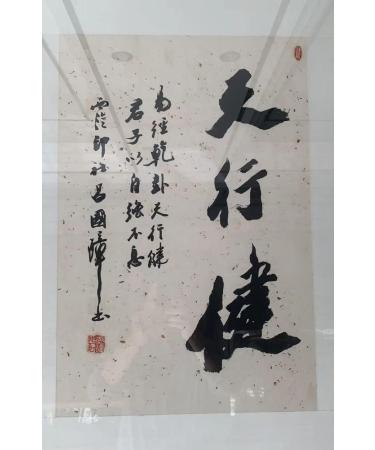 天行健
易經乾卦天行健
君子以自強不息
西泠印社吕國璋书